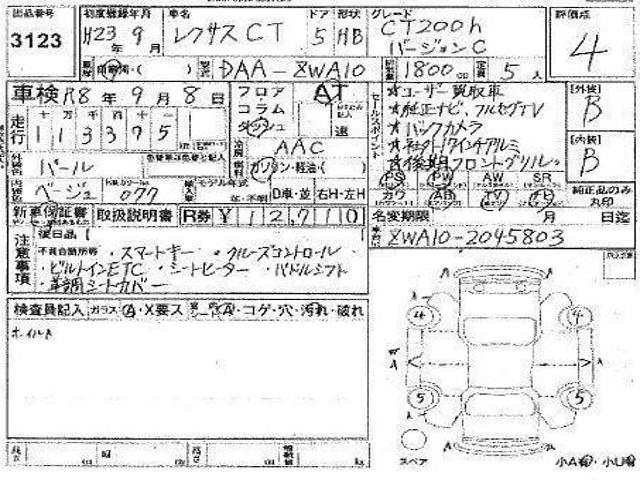 出品番号 初度登録年月 車名 ドア 形状 グレード 評価点
3123 H23年 9月 レクサス CT 5 HB CT200h バージョンC 4
型式 DAA-ZWA10 1800 cc 定員 5人
車検 R8年 9月 8日 フロア AT
コラム
ダッシュ
走行 113375
冷房 AAC
燃料 ガソリン・軽油・( )
外装色 パール
内装色 ベージュ カラーNo 077 モデル年式
D車・並 右H・左H
セールスポイント
★ユーザー買取車
★純正ナビ、フルセグTV
★バックカメラ
★社外17インチアルミ
★後期フロントグリル
[外装] B
[内装] B
PS PW AW SR
カワ AB
純正品のみ丸印
新車保証書 取扱説明書 R券 ¥12,710 名変期限 月 日迄
注意事項
後日品[ ]
不具合箇所等
・スマートキー ・クルーズコントロール
・ビルトインETC ・シートヒーター ・パドルシフト
・革調シートカバー
ZWA10-2045803
検査員記入 ガラス A・X要ス A・コゲ・穴・汚れ・破れ
ホイルA
4 4
A A
5 5
スペア
小A有・小U有